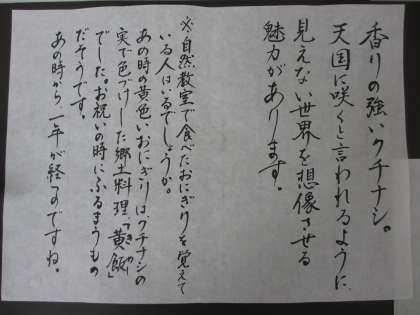 香りの強いクチナシ。
天国に咲くと言われるように、
見えない世界を想像させる
魅力があります。
※自然教室で食べたおにぎりを覚えて
いる人はいるでしょうか。
あの時の黄色いおにぎりはクチナシの
実で色づけした郷土料理、「黄飯」
きめし
でした。お祝いの時にふるまうもの
だそうです。
あの時から、一年が経つのですね。